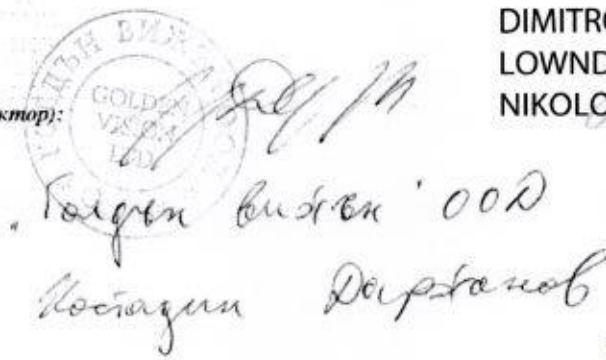 DIMITRO
LOWND
NIKOLO
ГОЛДЪН ВИЖЪН
GOLDEN
VISION
LTD
ктор):
„Голдън вижън" ООД
Костадин Даржанов